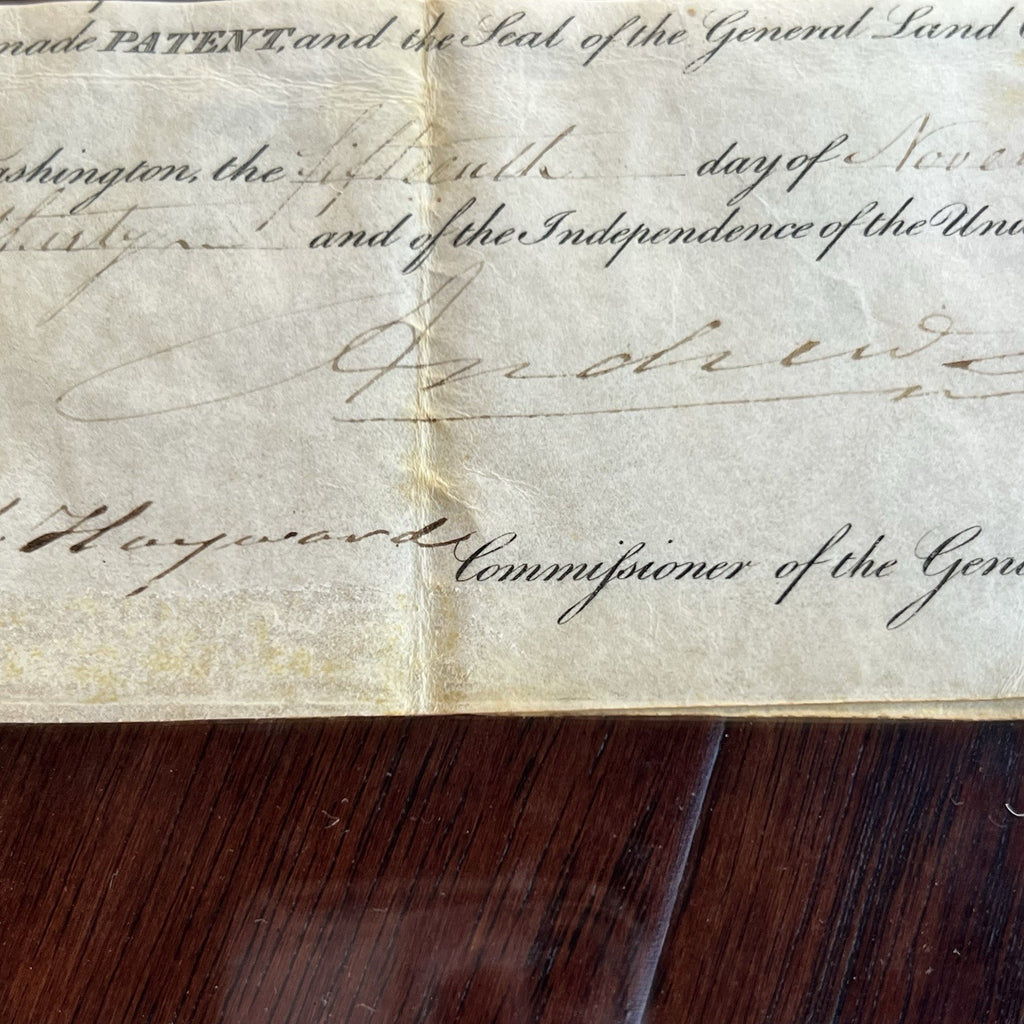 made PATENT, and the Seal of the General Land
ashington, the fifteenth day of Nove
thirty and of the Independence of the Uni
Andrew
Hayward Commissioner of the Gene